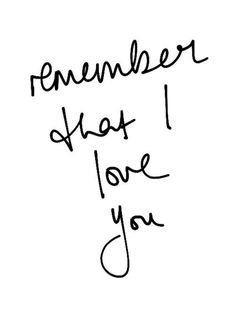 remember
that I
love
you